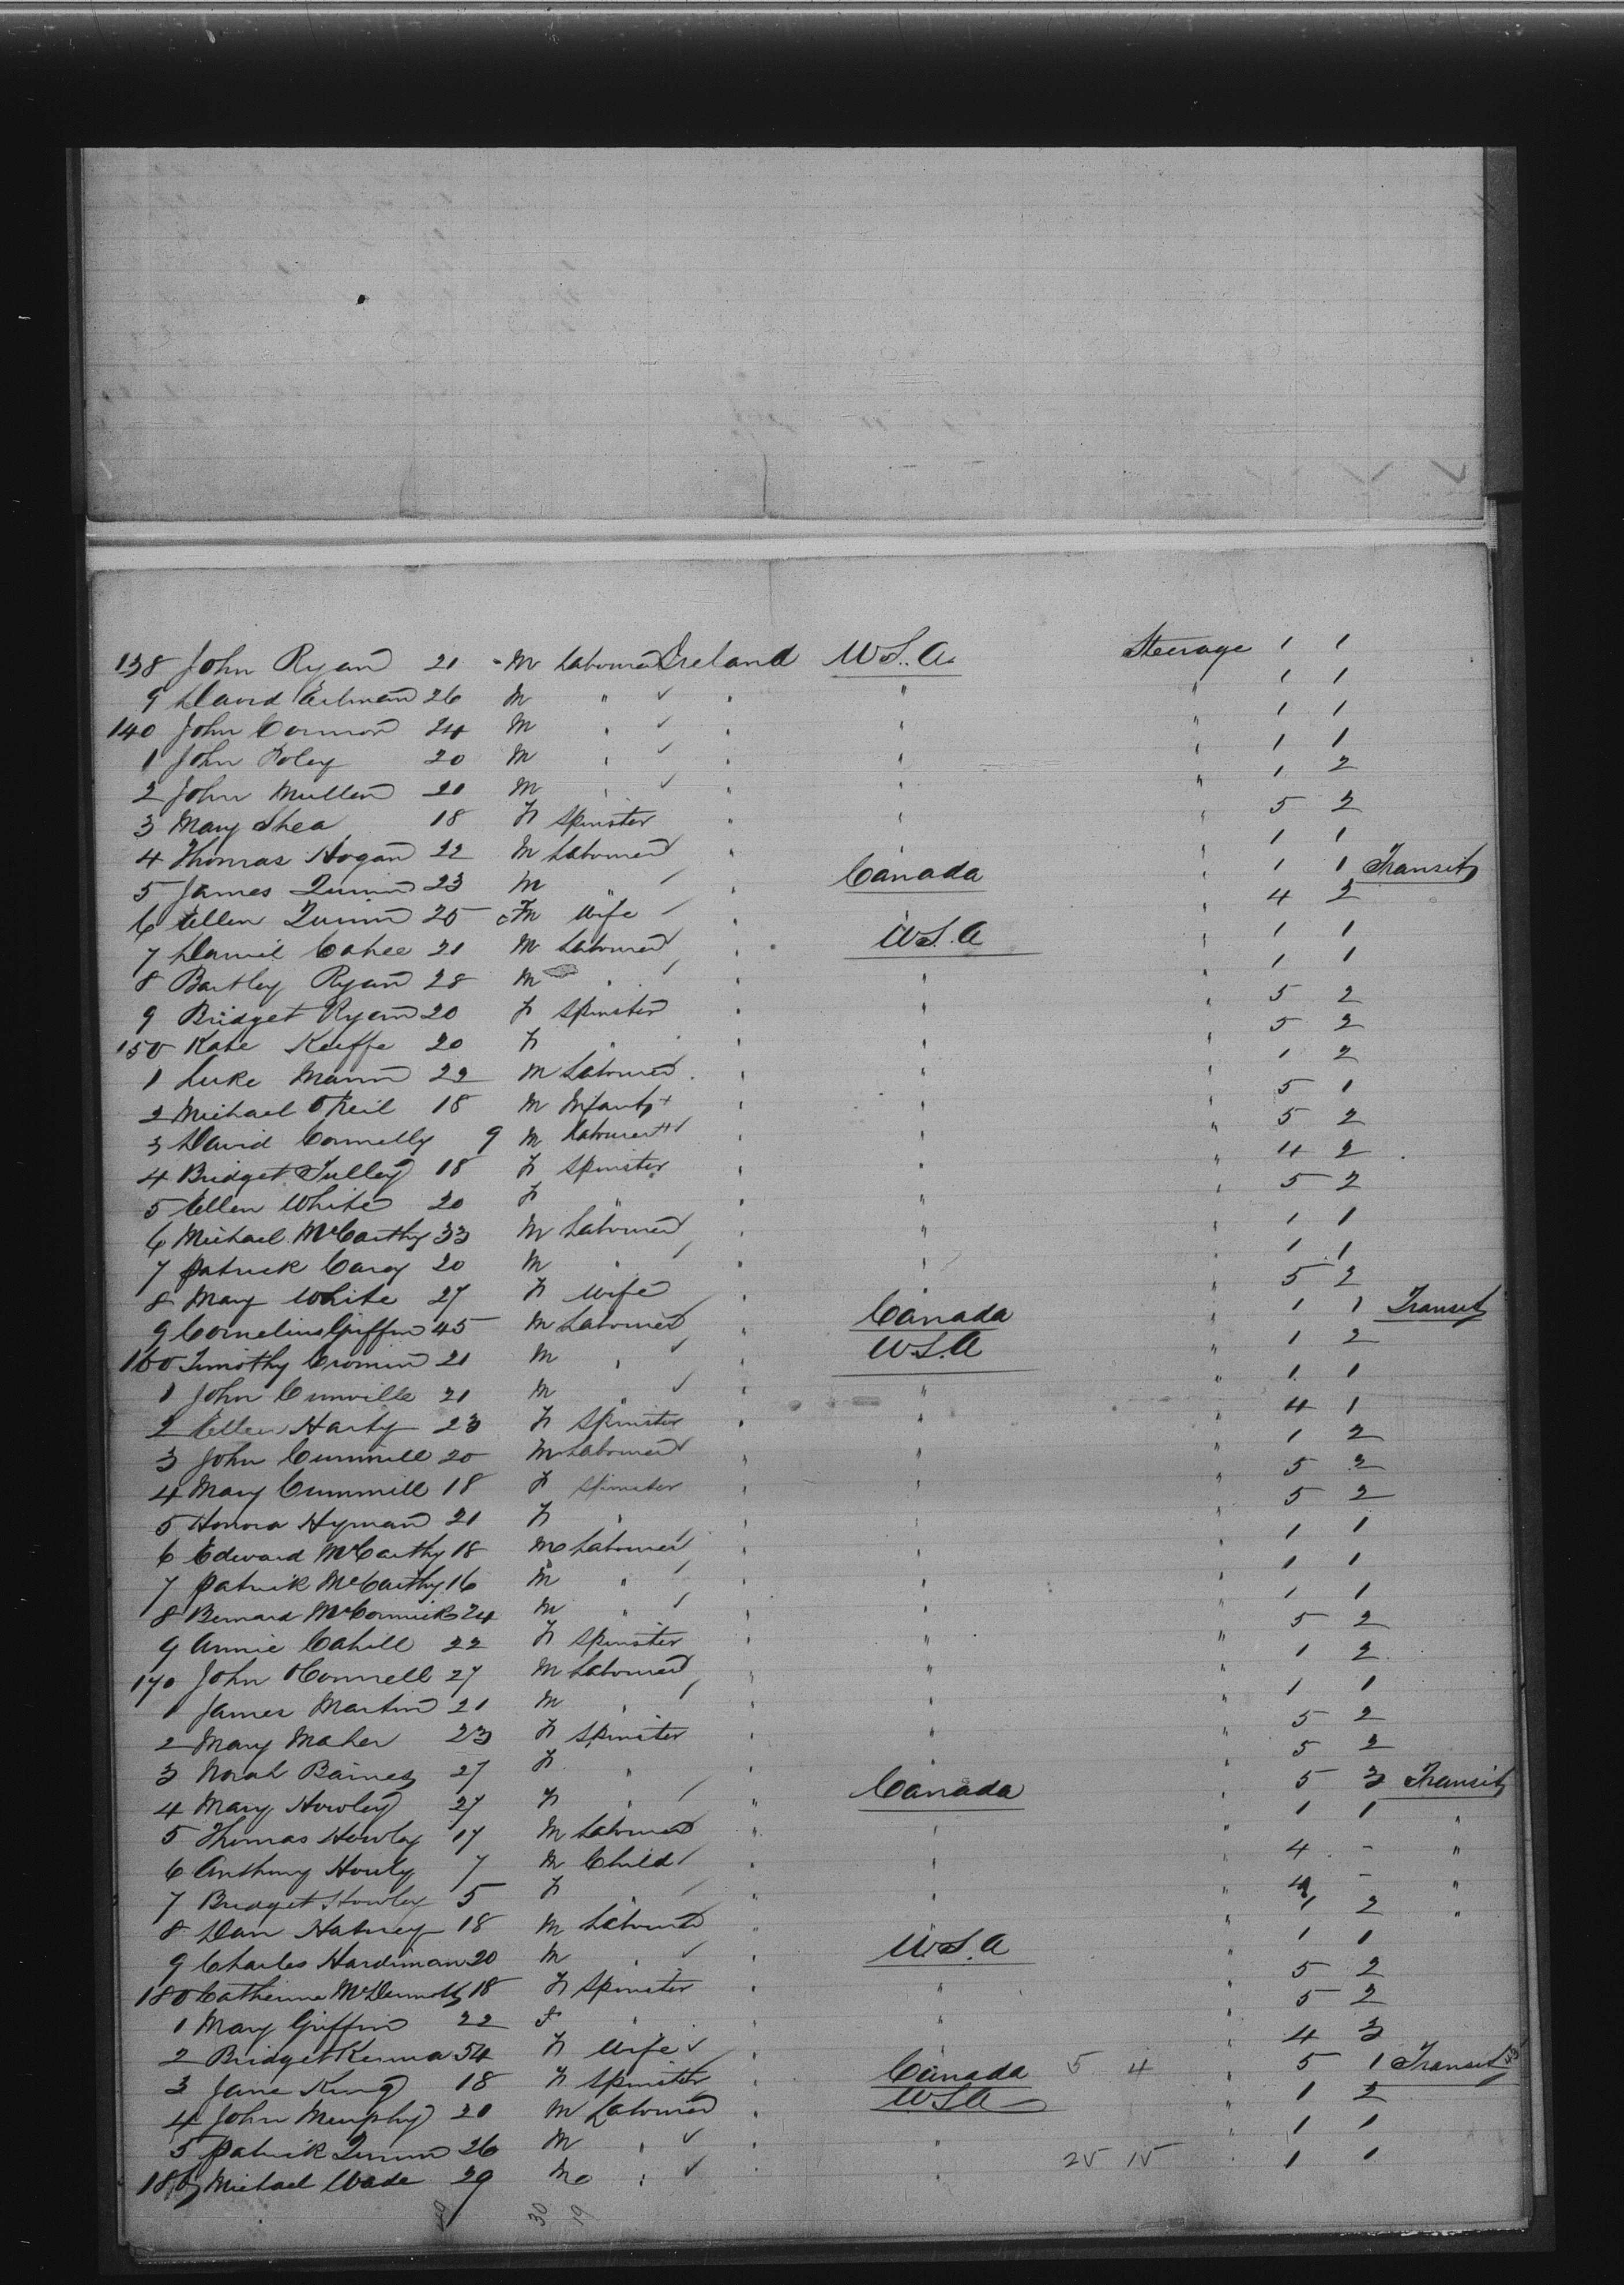 138 John Ryan 21 M Labourer Ireland U.S.A. Steerage 1 1
9 David 26 M " " " " 1 1
140 John Connor 24 M " " " " 1 1
1 John Foley 20 M " " " " 1 1
2 John Mullen 21 M " " " " 1 2
3 Mary Shea 18 F Spinster " " " 5 2
4 Thomas Hogan 22 M Labourer " " " 1 1
5 James Quinn 23 M " " Canada " 1 1 Transit
6 Ellen Quinn 25 F Wife " " 4 2
7 Daniel Cahee 21 M Labourer " U.S.A " 1 1
8 Bartley Ryan 28 M " " " " 1 1
9 Bridget Ryan 20 F Spinster " " " 5 2
150 Kate Keiffe 20 F " " " " 5 2
1 Luke Mann 22 M Labourer " " " 1 2
2 Michael O'Neil 18 M Infant + " " " 5 1
3 David Connelly 9 M Labourer + " " " 5 2
4 Bridget Tulley 18 F Spinster " " " 4 2
5 Ellen White 20 F " " " " 5 2
6 Michael McCarthy 33 M Labourer " " " 1 1
7 Patrick Carey 20 M " " " " 1 1
8 Mary White 27 F Wife " " " 5 2
9 Cornelius Griffin 45 M Labourer " Canada " 1 1 Transit
160 Timothy Cromin 21 M " " U.S.A " 1 2
1 John Cunville 21 M " " " " 1 1
2 Ellen Harty 23 F Spinster " " " 4 1
3 John Cummill 20 M Labourer " " " 1 2
4 Mary Cummill 18 F Spinster " " " 5 2
5 Honora Hyman 21 F " " " " 5 2
6 Edward McCarthy 18 M Labourer " " " 1 1
7 Patrick McCarthy 16 M " " " " 1 1
8 Bernard McCormick 24 M " " " " 1 1
9 Annie Cahill 22 F Spinster " " " 5 2
170 John OConnell 27 M Labourer " " " 1 2
1 James Martin 21 M " " " " 1 1
2 Mary Maher 23 F Spinster " " " 5 2
3 Norah Baines 27 F " " " " 5 2
4 Mary Howley 27 F " " Canada " 5 3 Transit
5 Thomas Howley 17 M Labourer " " " 1 1 "
6 Anthony Howly 7 M Child " " " 4 - "
7 Bridget Howley 5 F " " " " 4 - "
8 Dan 18 M Labourer " " 1 2 "
9 Charles Hardiman 20 M " " U.S.A " 1 1
180 Catherine McDermott 18 F Spinster " " " 5 2
1 Mary Griffin 22 F " " " " 5 2
2 Bridget 54 F Wife " " 4 3
3 Jane King 18 F Spinster " Canada 5 4 " 5 1 Transit
4 John Murphy 20 M Labourer " U.S.A " 1 2
5 Patrick Quinn 26 M " " " " 1 1
186 Michael Wade 29 M " " " 25 15 " 1 1
30 19